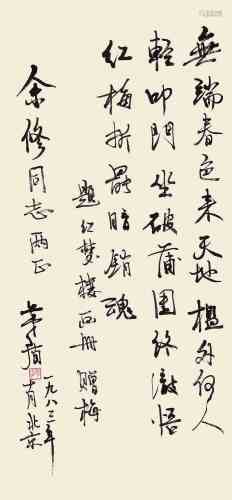 無端春色来天地檻外何人
輕叩門坐破蒲團終澈悟
红梅折罷暗銷魂
題红梦楼画册贈梅
余修同志两正
茅盾
一九八三年
月北京